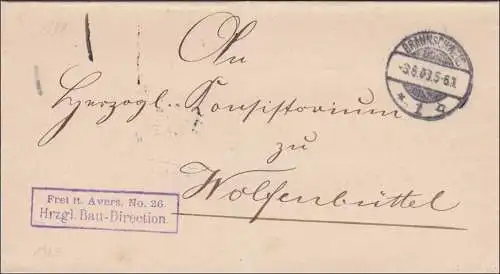 An
BRAUNSCHWEIG
-3.6.03.5-6.N.
* 1 n
Herzogl. Konsistorium
zu
Wolfenbüttel
Frei lt. Avers. No. 26.
Hrzgl. Bau-Direction.